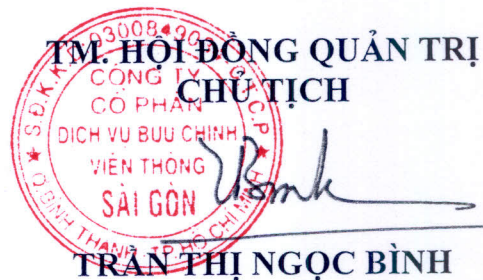 TM. HỘI ĐỒNG QUẢN TRỊ
CHỦ TỊCH
CÔNG TY
CỔ PHẦN
DỊCH VỤ BƯU CHÍNH
VIỄN THÔNG
SÀI GÒN
Q.BÌNH THẠNH T.P.HỒ CHÍ MINH
TRẦN THỊ NGỌC BÌNH